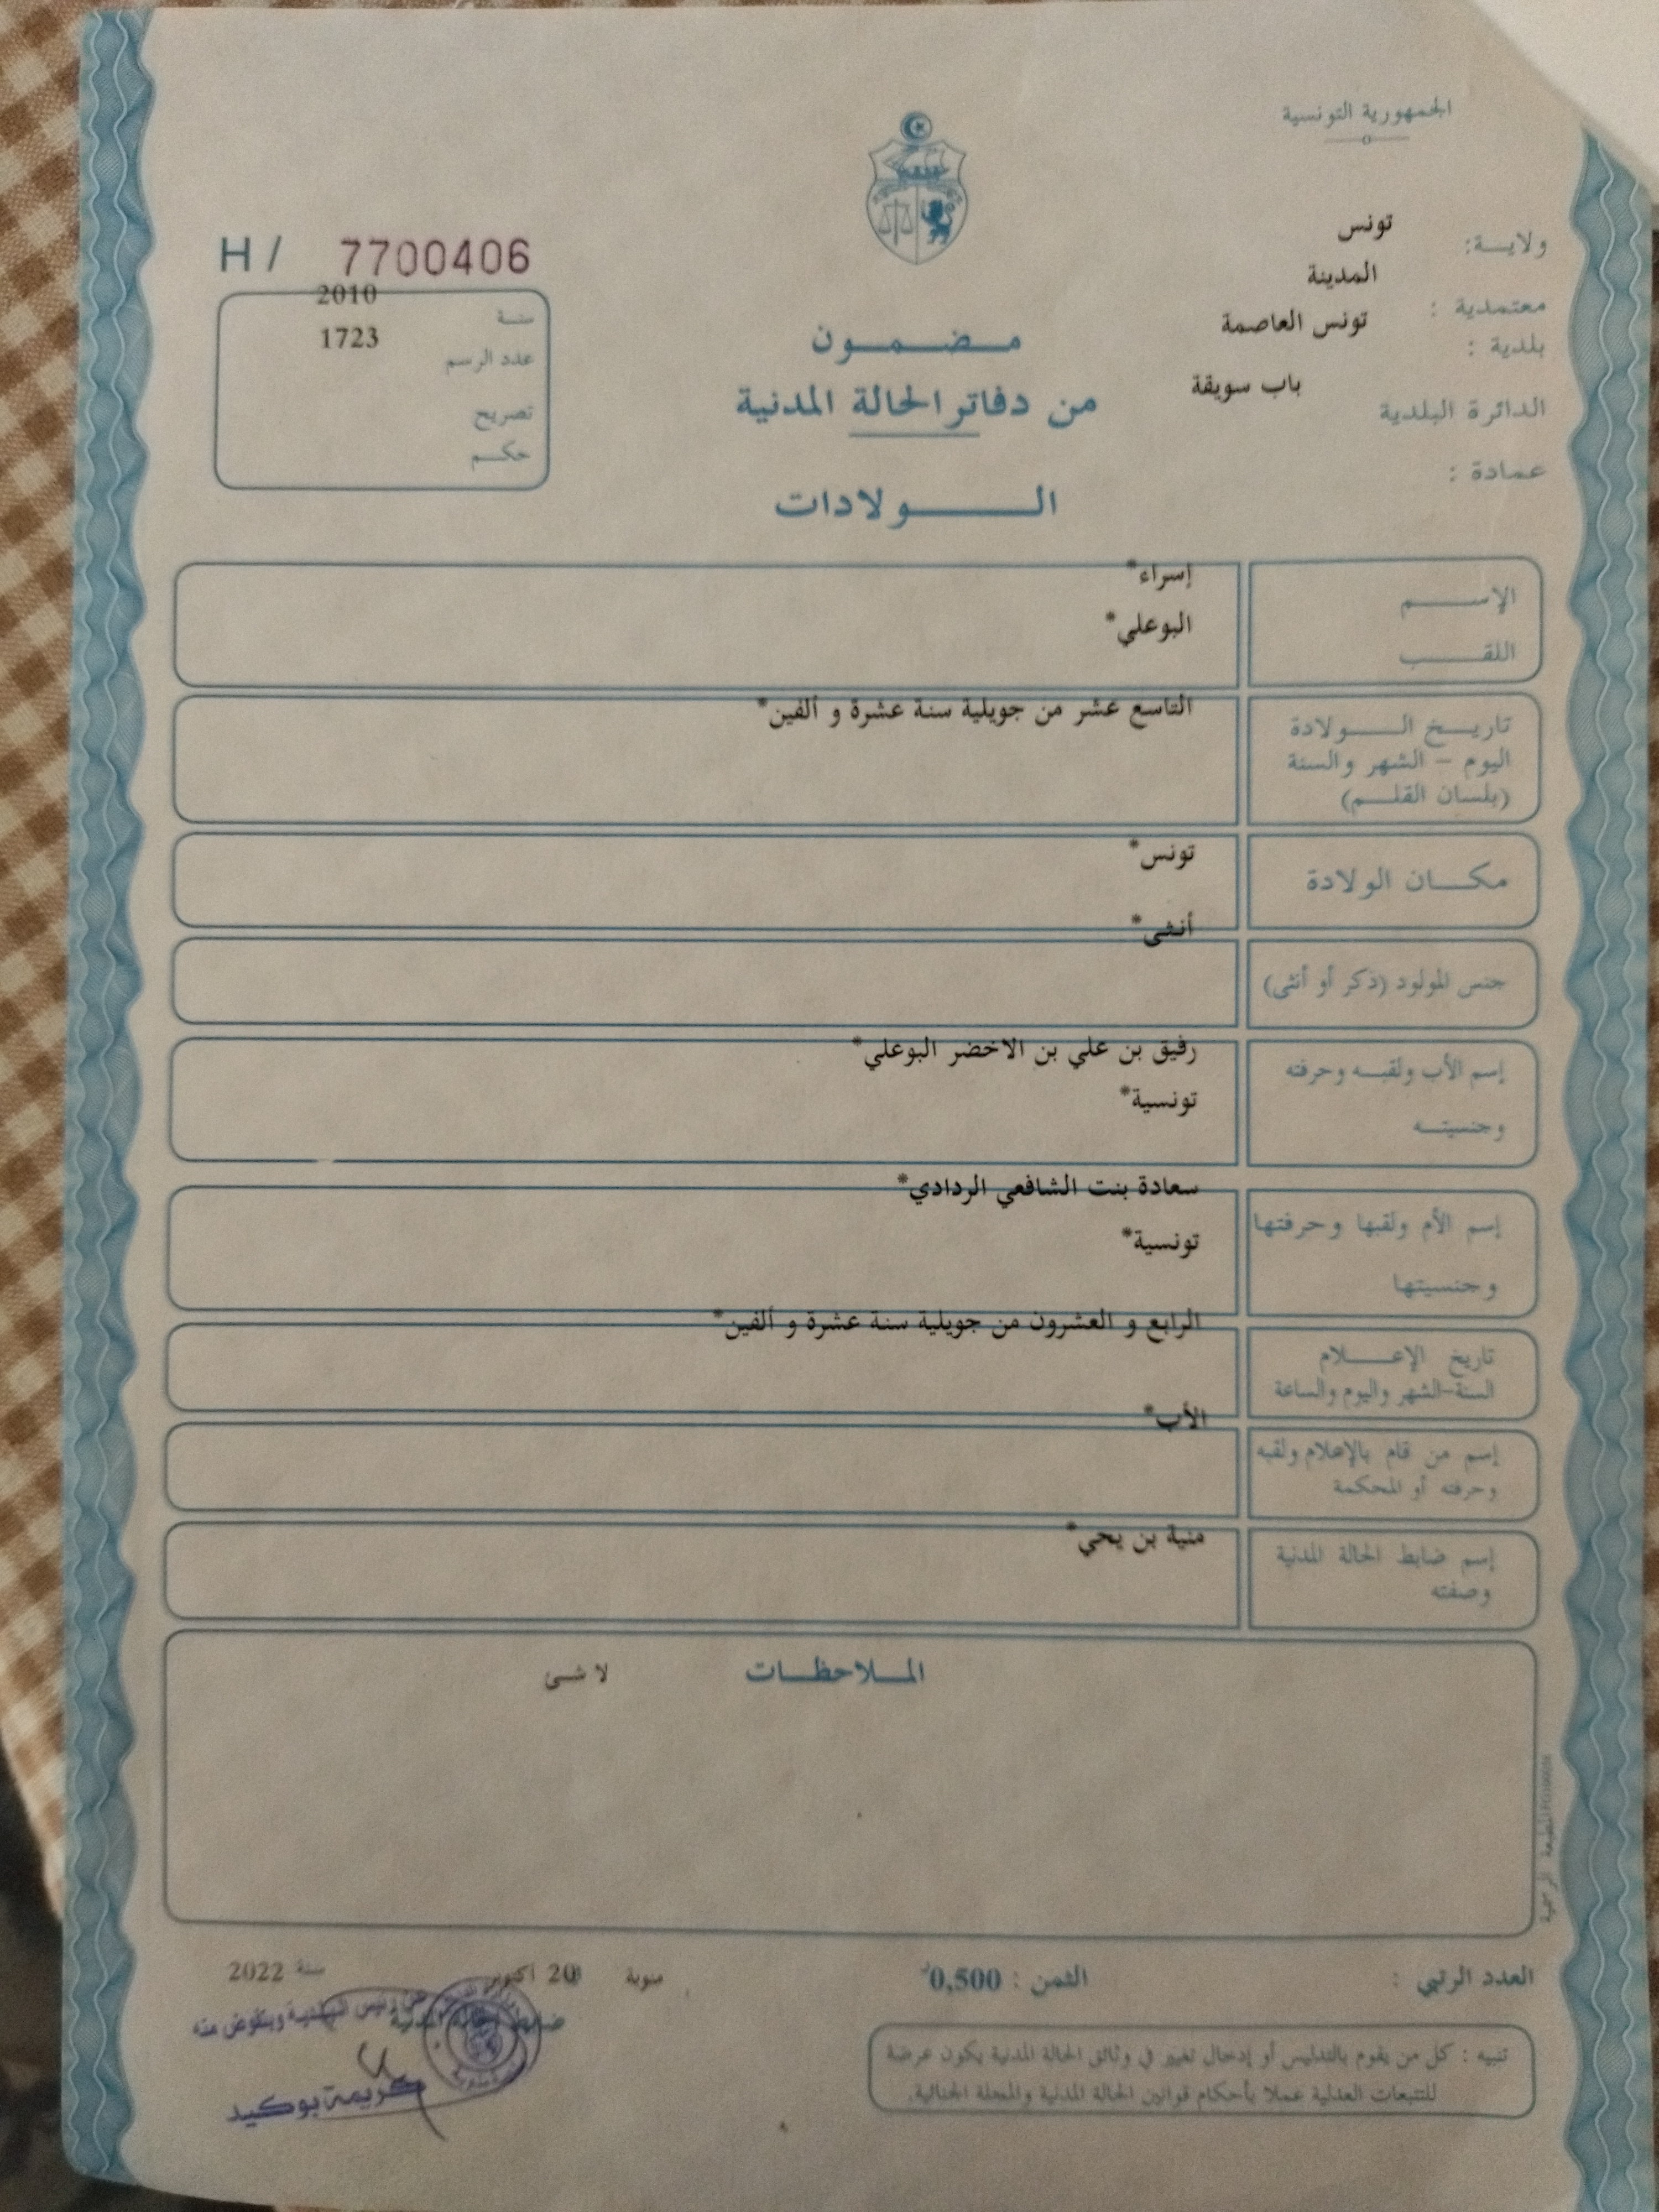 الجمهورية التونسية
ولايــة: تونس
معتمدية : المدينة
بلدية : تونس العاصمة
الدائرة البلدية باب سويقة
عمادة :
H / 7700406
سنة 2010
عدد الرسم 1723
تصريح
حكم
مضمون
من دفاتر الحالة المدنية
الولادات
الإسم إسراء*
اللقب البوعلي*
تاريخ الولادة التاسع عشر من جويلية سنة عشرة و ألفين*
اليوم – الشهر والسنة
(بلسان القلم)
مكان الولادة تونس*
جنس المولود (ذكر أو أنثى) أنثى*
إسم الأب ولقبه وحرفته رفيق بن علي بن الاخضر البوعلي*
وجنسيته تونسية*
إسم الأم ولقبها وحرفتها سعادة بنت الشافعي الردادي*
وجنسيتها تونسية*
تاريخ الإعلام الرابع و العشرون من جويلية سنة عشرة و ألفين*
السنة-الشهر واليوم والساعة
إسم من قام بالإعلام ولقبه الأب*
وحرفته أو المحكمة
إسم ضابط الحالة المدنية منية بن يحي*
وصفته
الملاحظات لا شئ
المطبعة الرسمية
العدد الرتبي :
الثمن : 0,500د
منوبة 20 أكتوبر سنة 2022
ضابط الحالة المدنية
عن رئيس البلدية وبتفويض منه
كريمة بوكيد
تنبيه : كل من يقوم بالتدليس أو إدخال تغيير في وثائق الحالة المدنية يكون عرضة
للتتبعات العدلية عملا بأحكام قوانين الحالة المدنية والمجلة الجنائية.